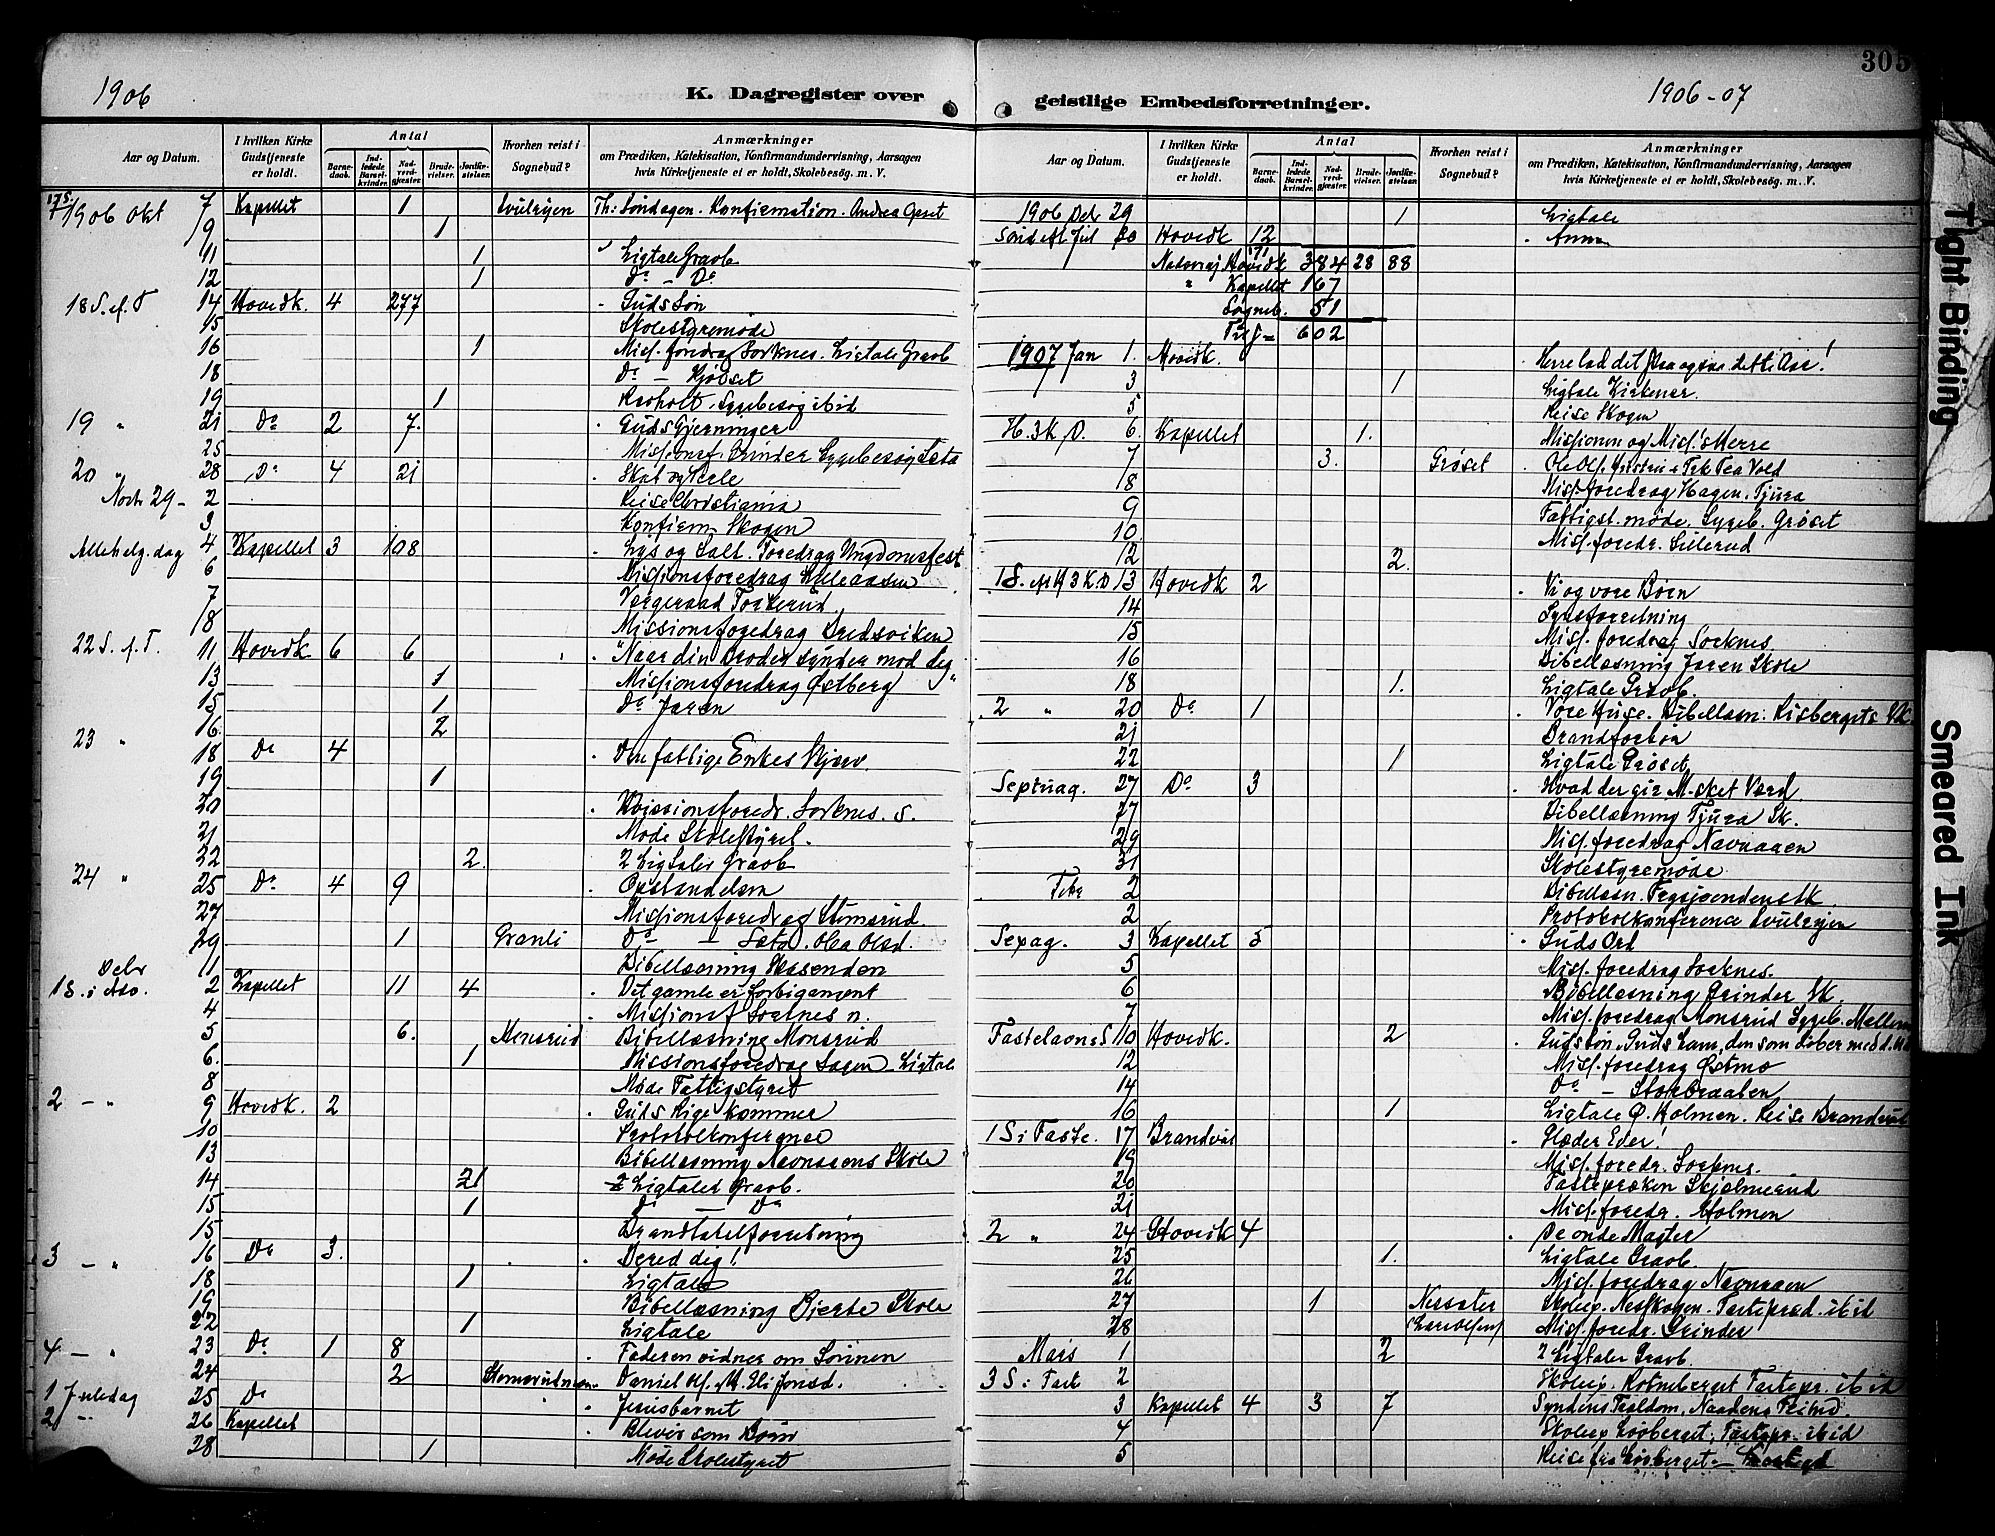 305
1906
K. Dagregister over
Aar og Datum.
I hvilken Kirke Gudstjeneste er holdt.
Antal
Barnedaab.
Indledede Barselkvinder.
Nadverdgjæster.
Brudevielser.
Jordfæstelser.
Hvorhen reist i Sognebud?
Anmærkninger
om Prædiken, Katekisation, Konfirmandundervisning, Aarsagen
hvis Kirketjeneste ei er holdt, Skolebesøg. m. V.
17 S. 1906 Okt 7 Kapellet 1 Th: Søndagen. Konfirmation.
9 1
11 1 Ligtale Gravb
12 1 Do - Do
18 S. ef. T 14 Hovedk. 4 277 Guds Søn
15 Skolestyremøde
16 1 Miss. foredrag Sorknes. Ligtale Gravb
18 Do - Kjølset
19 1 Sygebesøg ibid
19 " 21 Do 2 7. Guds Gjerninger
25 Missionsf. Grinder Sygebesøg Sæta
20 " 28 Do 4 21 Skat og Perle
Novbr 29 - 2 Reise Christiania
3 Konfirm. Skogen
Allehelg. dag 4 Kapellet 3 108 Lys og Salt. Foredrag Ungdomsfest
6 Missionsforedrag
7 Vergeraad
8 Missionsforedrag
22 S. e. T. 11 Hovedk 6 6 "Naar din Broder synder mod dig"
13 1 Missionsforedrag Østberg
15 1 Do Jaren
16 2
23 " 18 Do 4 Den fattige Enkes Skjærv
19 1
20 Missionsforedr. Sorknes. s.
21 Møde Skolestyret.
22 2. 2 Ligtaler Gravb
24 " 25 Do 4 9 Opstandelsen
27 Missionsforedrag Stomsrud.
29 1 Granli Do - Sæta.
Debr 1 Bibellæsning
1 S. i Adv. 2 Kapellet 11 4 Det gamle er forbigangent
4 Missionsf Sorknes n.
5 6. Monsrud Bibellæsning Monsrud
6. 1 Missionsforedrag Sagen. Ligtale
8 Møde Fattigstyret
2 - " 9 Hovedk. 2 Guds Rige kommer
10 Protokolkonference
13 Bibellæsning Navnaaens Skole
14 21 2 Ligtaler Gravb.
15 1 Do - Do
15 Brandtakstforretning
3 - " 16 Do 3. Bered dig!
18 1 Ligtale
19 Bibellæsning Bjerke Skole
22 1 Ligtale
4 - " 23 Do 1 8 Faderen vidner om Sønnen
24 2 Daniel
1 Juledag 25 Do Jesusbarnet
2 " 26 Kapellet Bliver som Børn
28 1 Møde Skolestyret
geistlige Embedsforretninger.
1906-07
Aar og Datum.
I hvilken Kirke Gudstjeneste er holdt.
Antal
Barnedaab.
Indledede Barselkvinder.
Nadverdgjæster.
Brudevielser.
Jordfæstelser.
Hvorhen reist i Sognebud?
Anmærkninger
om Prædiken, Katekisation, Konfirmandundervisning, Aarsagen
hvis Kirketjeneste ei er holdt, Skolebesøg. m. V.
1906 Debr 29 1 Ligtale
Sønd. ef. Jul 30 Hovedk 12 Anna
Hovedk 171 384 28 88
" Kapellet 167
Sogneb. 51
602
1907 Jan 1. Hovedk. Herre lad det staa ogsaa dette Aar!
3 1 Ligtale Kirkener.
5 Reise Skogen
H. 3 K. D. 6. Kapellet 1. Missionen og Miss.s Herre
7 3. Grøset
8 Miss. foredrag Hagen. Tjura
9 Fattigst. møde. Sygeb. Grøset
10 Miss. foredr. Lillerud
12 2.
1 S. ef. H 3 K. D 13 Hovedk 2 Vi og vore Børn
14 Synsforretning
15 Miss. foredrag Sorknes.
16 Bibellæsning Jaren Skole
18 1. Ligtale Gravb.
2 " 20 Do 1 Vore Huse. Bibellæsn:
21
22 1 Ligtale Grøset
Septuag. 27 Do 3 Hvad der gir M-sket Værd.
27 Bibellæsning Tjura Sk.
29 Miss. foredrag Navnaaen
31 Skolestyremøde
Febr 2 Bibellæsn.
2 Protokolkonference
Sexag. 3 Kapellet 5 Guds Ord
5 Miss. foredrag Sorknes.
6 Bibellæsning Grinder Sk.
7 Miss. foredrag Monsrud Sygeb.
Fastelavns S 10 Hovedk. 2 Guds Søn, Guds Lam, den som døber med d.
12 Miss. foredrag Østmo
14 Do - Storbraaten
16 1 Ligtale Ø. Holmen. Reise Brandval
1 S i Faste. 17 Brandval Glæder Eder!
19 Miss. foredr. Sorknes.
20 Fastepræken Skjølmerud
21 Miss. foredr. Holmen
2 " 24 Hovedk 4 De onde Magter
25 1. Ligtale Gravb.
26 Miss. foredrag Navnaaen
27 1 Nessæter Skoleex. Nesskogen. Fastepræd. ibid
28 Miss. foredr. Grinder
Mars 1 2 2 Ligtaler Gravb.
3 S i Fast 2 Skoleex. Rotneberget Fastepr. ibid
3 Kapellet 4 3 7 Syndens Trældom, Naadens Frihed
4 Skoleex Løvberget, Fastepr. ibid
5 Reise fra Løvberget -
Tight Binding
Smeared Ink